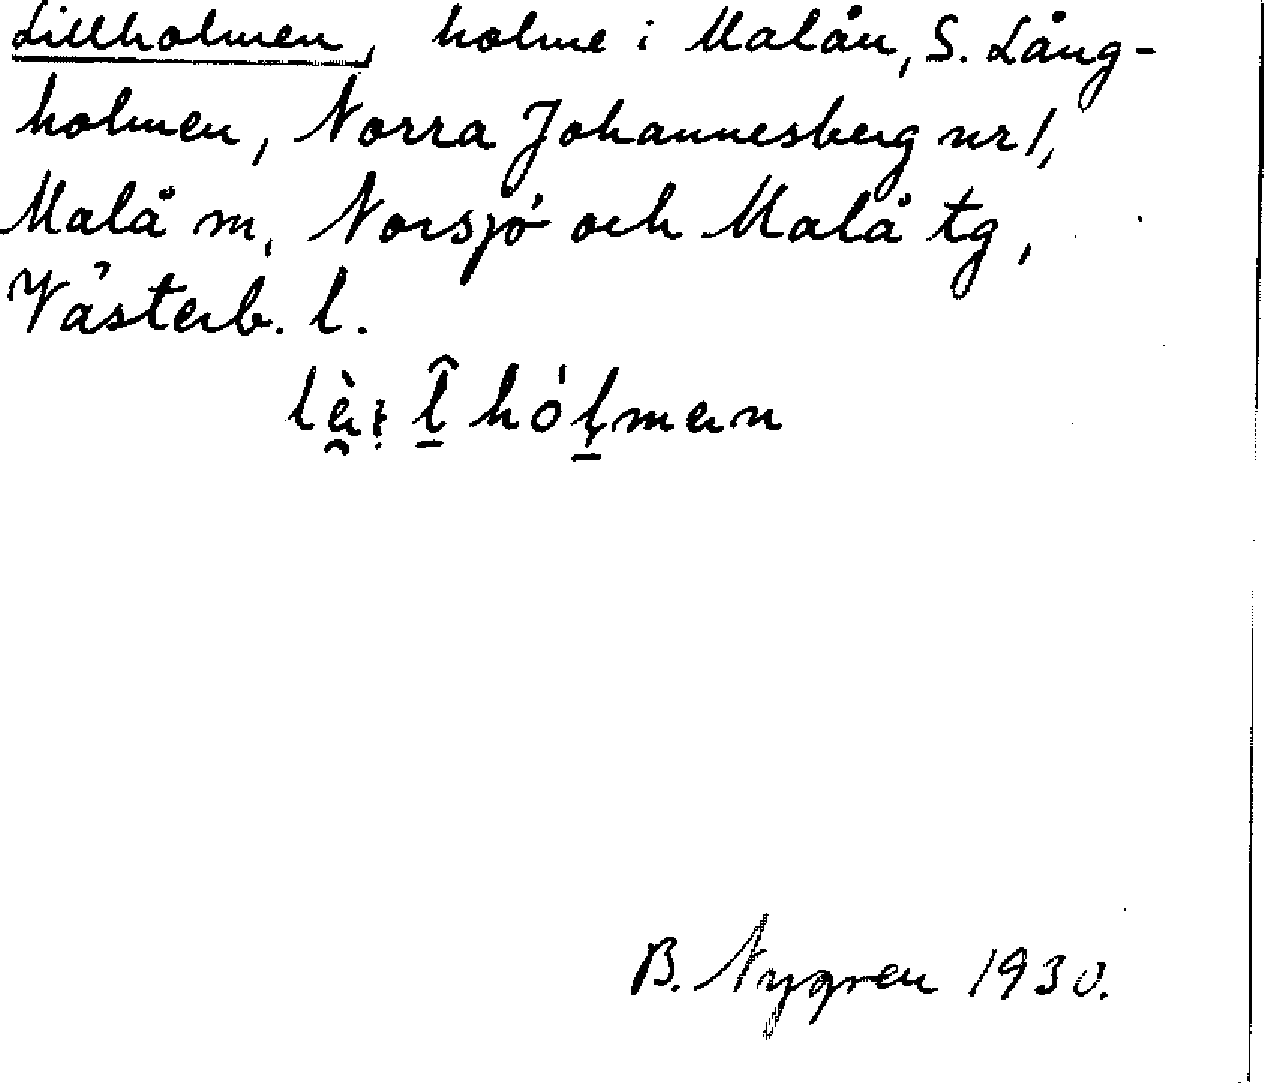 Lillholmen, holme i Malån, S. Lång-
holmen, Norra Johannesberg nr 1,
Malå sn, Norsjö och Malå tg,
Västerb. l.
B. Nygren 1930.